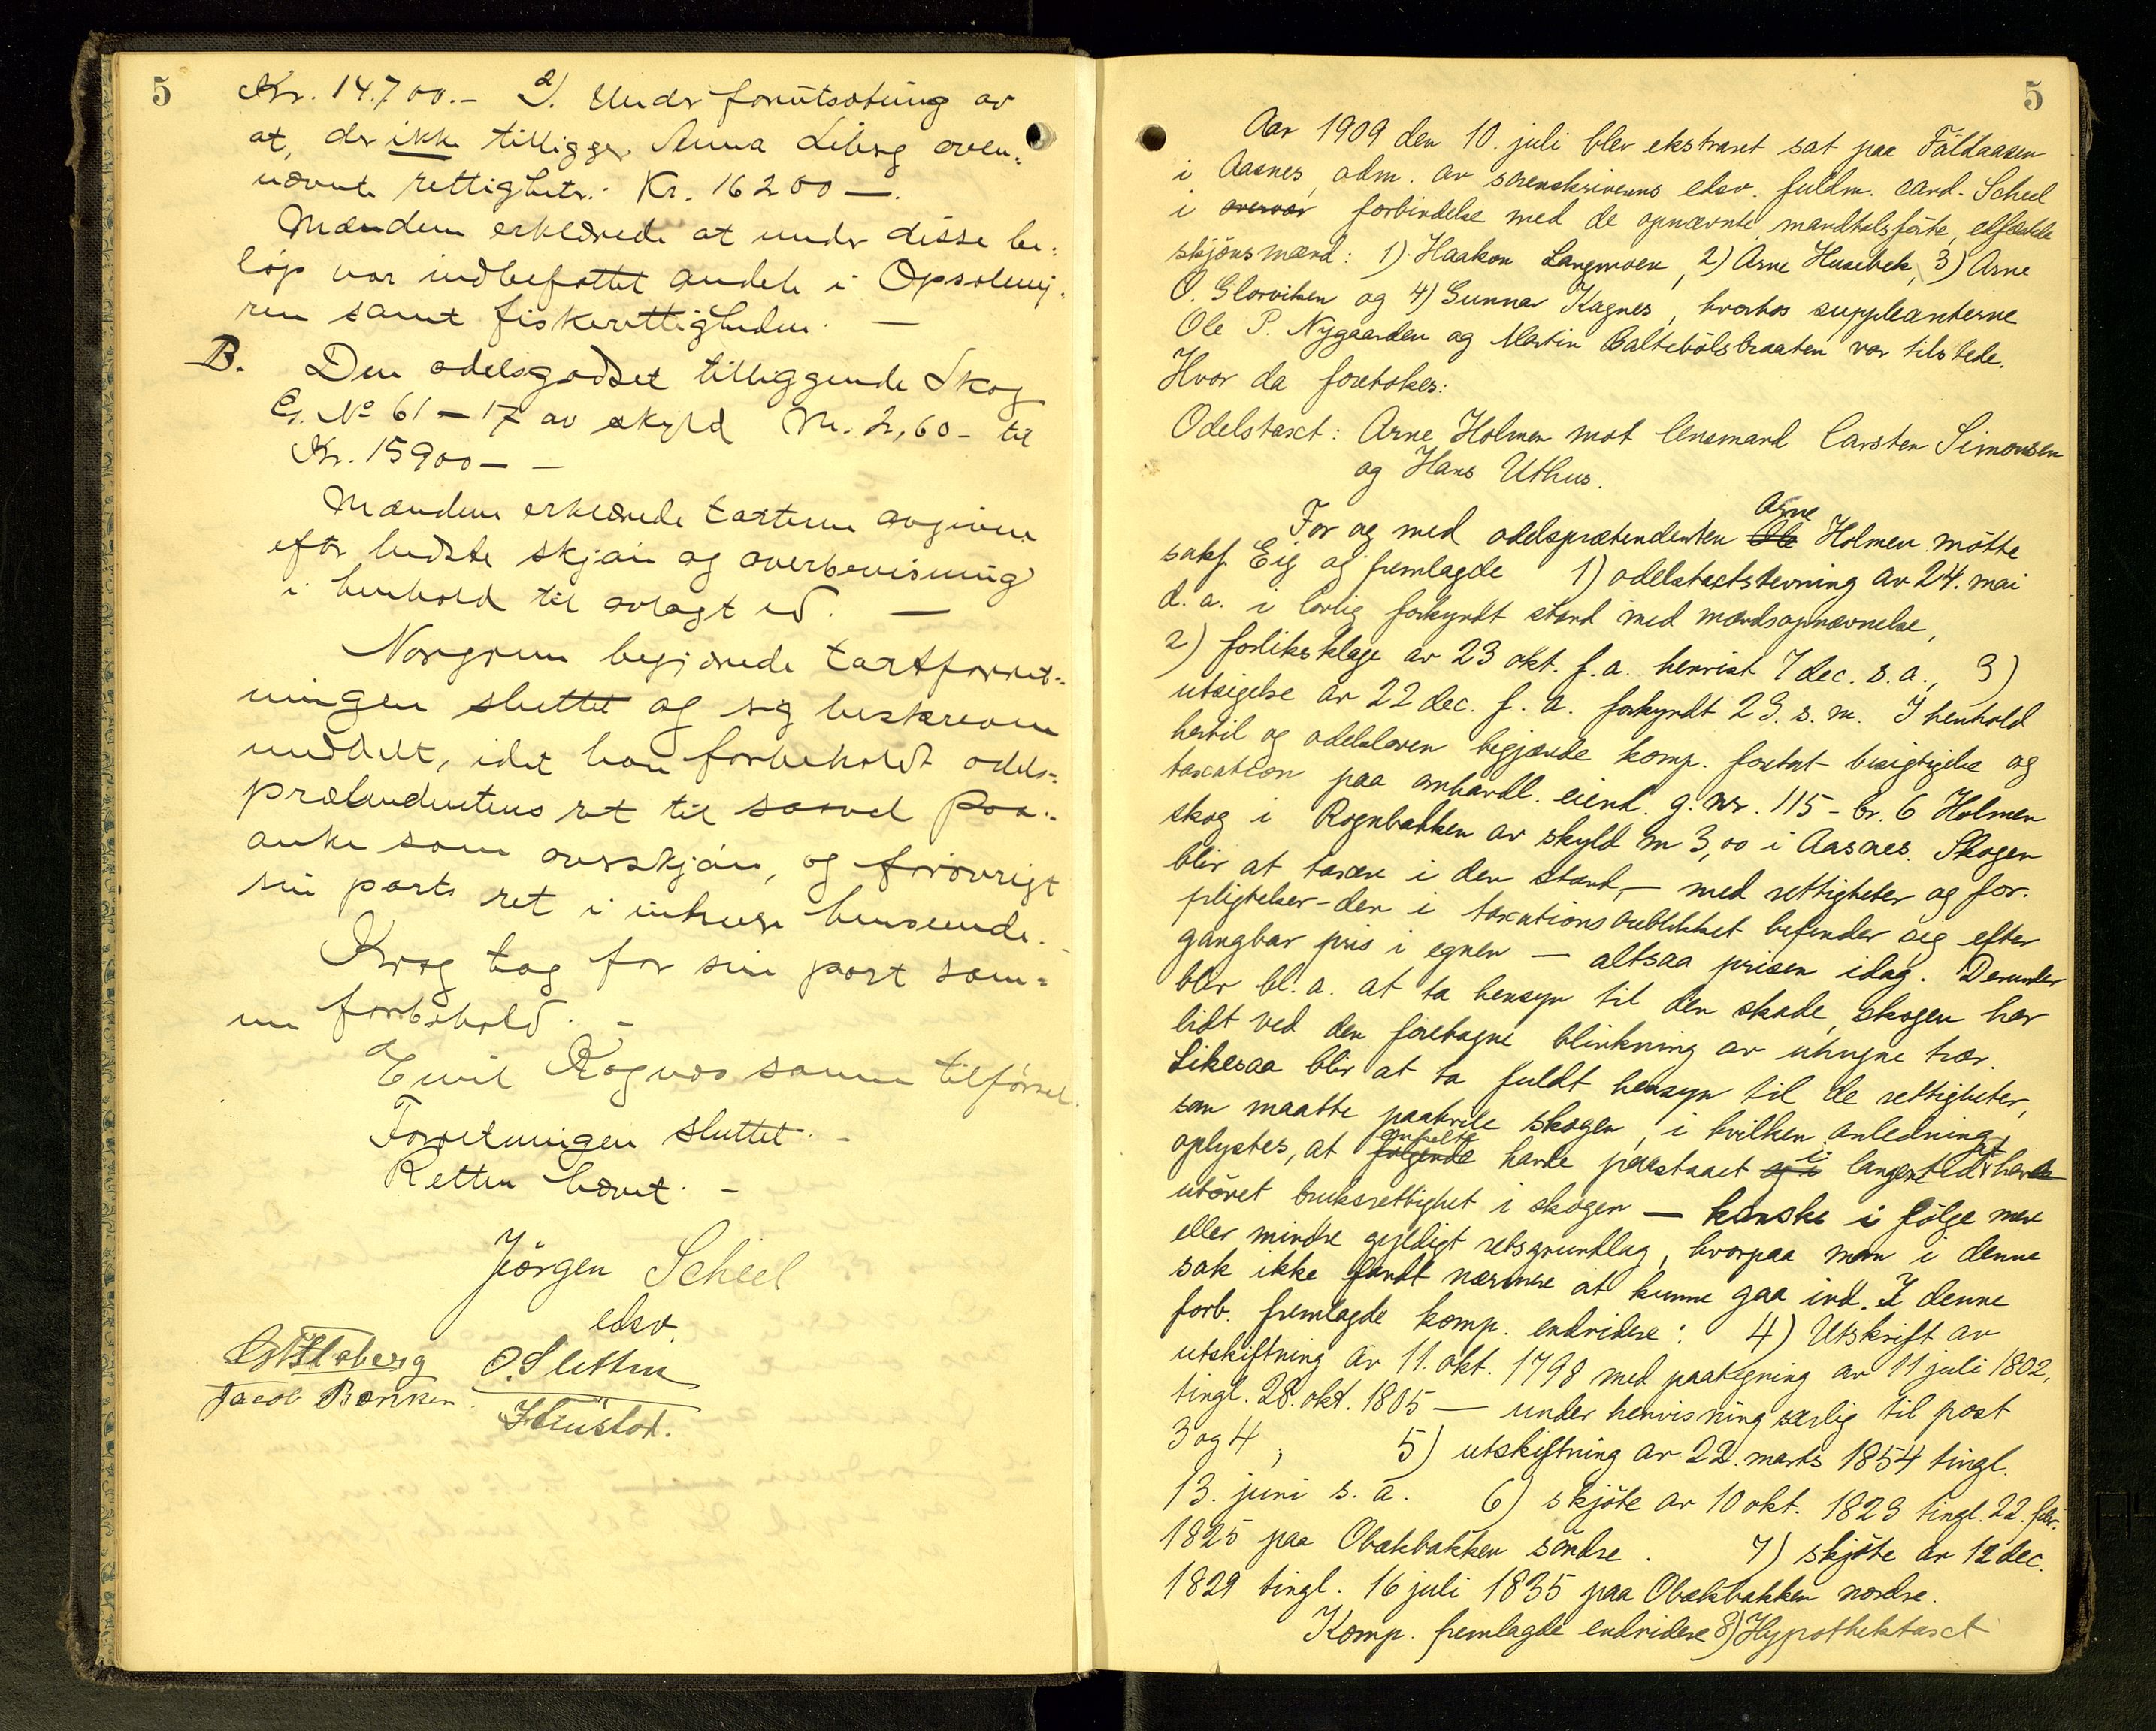 5
Kr. 14.700.- 2). Under forutsætning av
at, der ikke tilligger Anna Liberg oven-
nævnte rettigheter: Kr. 16200 —.
Mændene erklærede at under disse be-
løp var indbefattet andele i Opsalmy-
ren samt fiskerettigheden. —
B. Den odelsgodset tilliggende Skog
G. No 61 – 17 av skyld M. 2,60 – til
Kr. 15900 – –
Mændene erklærede taxterne avgivne
efter bedste skjøn og overbevisning
i henhold til avlagt ed. —
Norgren begjærede taxtforret-
ningen sluttet og sig beskreven
meddelt, idet han forbeholdt odels-
prætendentens ret til saavel paa-
anke som overskjøn, og forøvrigt
sin parts ret i enhver henseende.
Krog tog for sin part sam-
me forbehold. –
Emil Kagnæs samme tilførsel.
Forretningen sluttet. –
Retten hævet. –
Jörgen Scheel
edsv.
O. Sletten
Jacob Bonken
5
Aar 1909 den 10. juli blev ekstraret sat paa Fäldaasen
i Aasnes, adm. av sorenskriverens edsv. fuldm. cand. Scheel
i overvær forbindelse med de opnævnte, mandtalsførte, edfæstede
skjönsmænd: 1) Haakon Langmoen, 2) Arne Husebek, 3) Arne
O. Glorviken og 4) Gunnar Kagnes, hvorhos suppleanterne
Ole P. Nygaarden og Martin Baltebölsbraaten var tilstede.
Hvor da foretokes:
Odelstaxt: Arne Holmen mot lensmand Carsten Simonsen
og Hans Uthus.
For og med odelsprætendenten Ole Arne Holmen mötte
sakf. Eig og fremlagde 1) odelstaxtstevning av 24. mai
d. a. i lovlig forkyndt stand med mændsopnævnelse,
2) forliksklage av 23 okt. f. a. henvist 7 dec. s. a., 3)
utsigelse av 22 dec. f. a. forkyndt 23. s. m. I henhold
hertil og odelsloven begjærede komp. foretat besigtigelse og
taxation paa omhandl. eiend. g. nr. 115 – br. 6 Holmen
skog i Rognbakken av skyld m 3,00 i Aasnes. Skogen
blir at taxere i den stand, – med rettigheter og for-
pligtelser – den i taxationsøieblikket befinder sig efter
gangbar pris i egnen — altsaa prisen idag. Derunder
blir bl. a. at ta hensyn til den skade, skogen har
lidt ved den foretagne blinkning av utvugne trær.
Likesaa blir at ta fuldt hensyn til de rettigheter,
som maatte paahvile skogen, i hvilken anledning
oplystes, at følgende enkelte havde paastaaet og i i længere tid at have
utövet bruksrettighet i skogen — kanske i følge mere
eller mindre gyldigt retsgrundlag, hvorpaa man i denne
sak ikke fandt nærmere at kunne gaa ind. I denne
forb. fremlagde komp. endvidere: 4) Utskrift av
utskiftning av 11. okt. 1798 med paategning av 11 juli 1802,
tingl. 28. okt. 1805 — under henvisning særlig til post
3 og 4, 5) utskiftning av 22. marts 1854 tingl.
13. juni s. a. 6) skjöte av 10 okt. 1823 tingl. 22. febr.
1825 paa Obækbakken söndre. 7) skjöte av 12 dec.
1829 tingl. 16 juli 1835 paa Obækbakken nordre.
Komp. fremlagde endvidere 8) Hypothektaxt